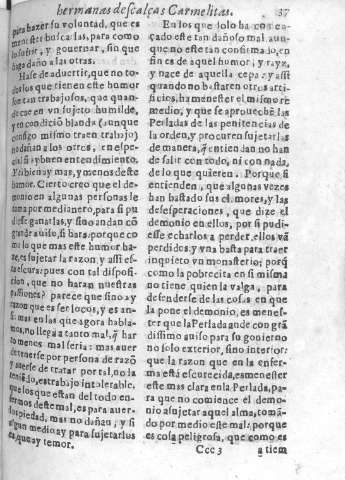 hermanas descalças Carmelitas. 37
para hazer su voluntad, que es
menester buscallas, para como
lo sufrir, y gouernar, sin que
haga daño a las otras.
Hase de aduertir, que no to-
dos los que tienen este humor
son tan trabajosos, que quan-
do cae en vn sujeto humilde,
y en condicio blanda (aunque
consigo mismo traen trabajo)
no dañan a los otros, en espe-
cial si ay buen entendimiento.
Y tibien ay mas, y menos deste
humor. Cierto creo que el de-
monio en algunas personas le
toma por medianero, para si pu
diesse ganarlas, y sino andan cō
grande auiso, si hara, porque co
mo lo que mas este humor ha-
ze, es sujetar la razon y assi es-
ta escura, pues con tal disposi-
cion, que no haran nuestras
passiones? parece que sino ay
razon que es ser locos, y es an-
si: mas en las que agora habla-
mos, no llega a tanto mal, q̃ har
to menos mal seria: mas auer
de tenerse por persona de razō
y auerse de tratar por tal, no la
teniēdo, es trabajo intolerable.
que los que estan del todo en-
fermos deste mal, es para auer-
los piedad, mas no dañan; y si
algun medio ay para sujetarlos
es, que ay temor.
En los que solo ha comen-
çado este tan dañoso mal, aun-
que no este tan confirmado, en
fin es de aquel humor, y rayz,
y nace de aquella cepa: y assi
quando no bastaren otros arti-
ficios, ha menester el mismo re
medio, y que se aprouechē las
Perladas de las penitencias de
la orden, y procuren sujetarlas
de manera, q̃ entiendan no han
de salir con todo, ni con nada,
de lo que quieren. Porque si
entienden, que algunas vezes
han bastado sus clamores, y las
desesperaciones, que dize el
demonio en ellos, por si pudi-
esse echarlos a perder, ellos vā
perdidos, y vna basta para traer
inquieto vn monasterio: porq̃
como la pobrecita en si misma
no tiene quien la valga, para
defenderse de las cosas en que
la pone el demonio, es menes-
ter que la Perlada ande con grā
dissimo auiso para su gouierno
no solo exterior, sino interior:
que la razon que en la enfer-
ma està escurecida, es menester
este mas clara en la Perlada, pa-
ra que no comience el demo-
nio a sujetar aquel alma, tomā-
do por medio este mal: porque
es cosa peligrosa, que como es
Ccc 3 a tiem